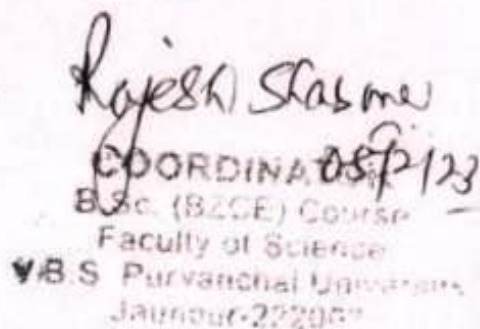 Rajesh Sharma
COORDINATOR 05/12/23
B.Sc. (BZCE) Course
Faculty of Science
V.B.S Purvanchal University
Jaunpur-222003